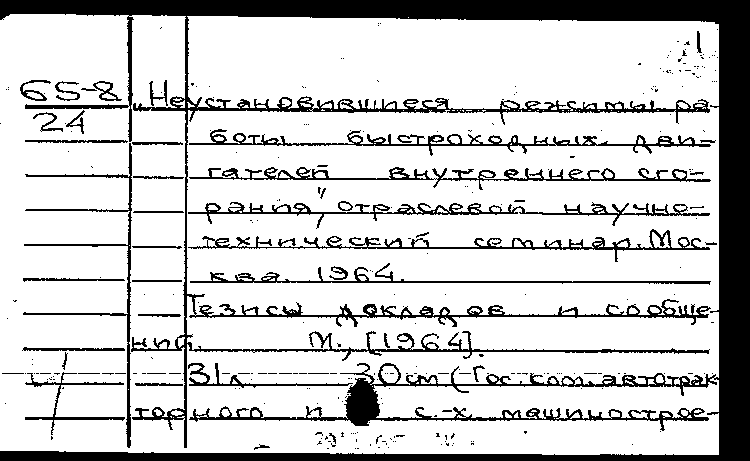 1
65-8 „Неустановившиеся режимы ра-
24 боты быстроходных дви-
гателей внутреннего сго-
рания", отраслевой научно-
технический семинар. Мос-
ква. 1964.
Тезисы докладов и сообще-
ний. М., [1964].
31 л. 30 см (Гос. ком. автотрак-
торного и с.-х. машинострое-